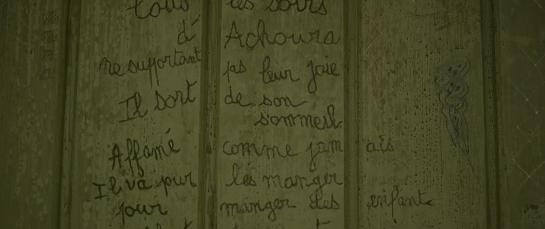 tous les soirs
d' Achoura
ne suportant pas leur joie
Il sort de son
sommeil
Affamé comme jam ais
Il va pour les manger
jour manger des enfant